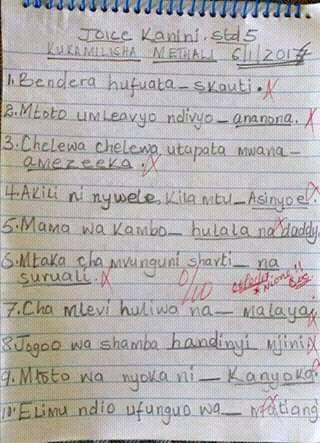 Joice Kanini. std 5
KUKAMILISHA METHALI 6/1/2017
1. Bendera hufuata - skauti.
2. Mtoto umleavyo ndivyo - ananona.
3. Chelewa chelewa utapata mwana -
amezeeka.
4. Akili ni nywele, kila mtu - Asinyoe.
5. Mama wa kambo - hulala na daddy.
6. Mtaka cha mvunguni sharti - na
suruali.
0/10
Nione
7. Cha mlevi huliwa na - malaya.
8. Jogoo wa shamba handinyi mjini
9. Mtoto wa nyoka ni - Kanyoka.
10. Elimu ndio ufunguo wa -